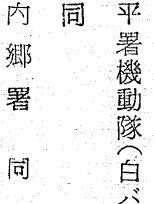 平署機動隊(白バ
同
内郷署　同